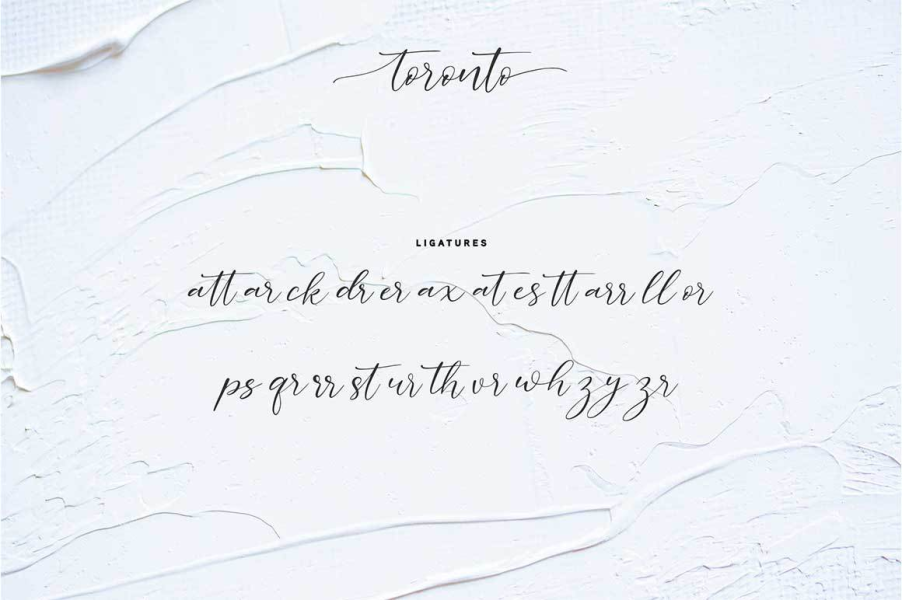 toronto
LIGATURES
att ar ck dr er ax at es tt arr ll or
ps qr rr st ur th vr wh zy zr